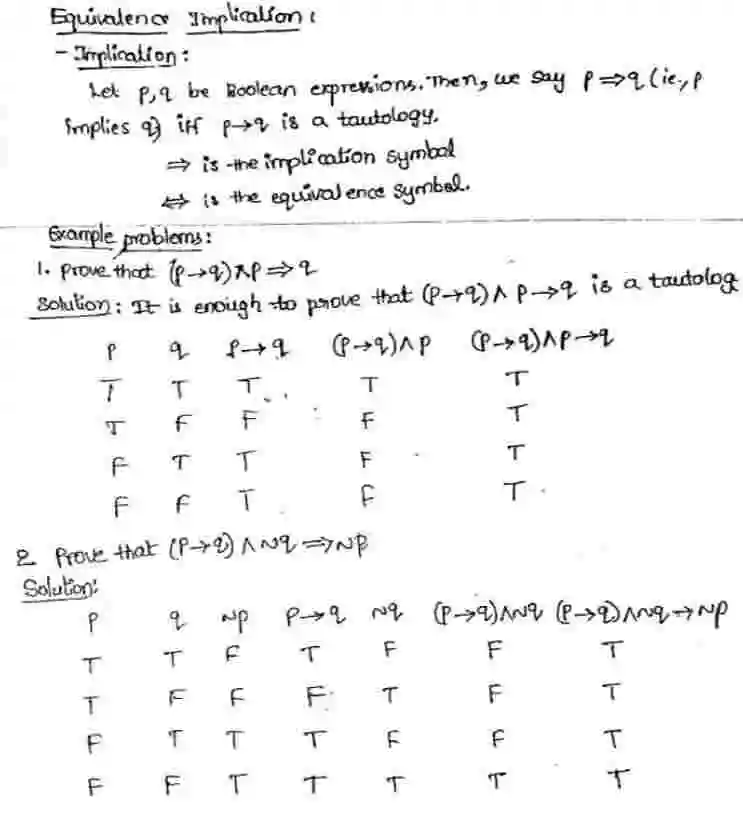 Equivalence Implication:
- Implication:
Let p, q be Boolean expressions. Then, we say p ⇒ q (ie., p
implies q) iff p → q is a tautology.
⇒ is the implication symbol
⇔ is the equivalence symbol.
Example problems:
1. prove that (p → q) ∧ p ⇒ q
Solution: It is enough to prove that (p → q) ∧ p → q is a tautolog
p q p → q (p → q) ∧ p (p → q) ∧ p → q
T T T T T
T F F F T
F T T F T
F F T F T
2 Prove that (p → q) ∧ ~q ⇒ ~p
Solution:
p q ~p p → q ~q (p → q) ∧ ~q (p → q) ∧ ~q → ~p
T T F T F F T
T F F F T F T
F T T T F F T
F F T T T T T